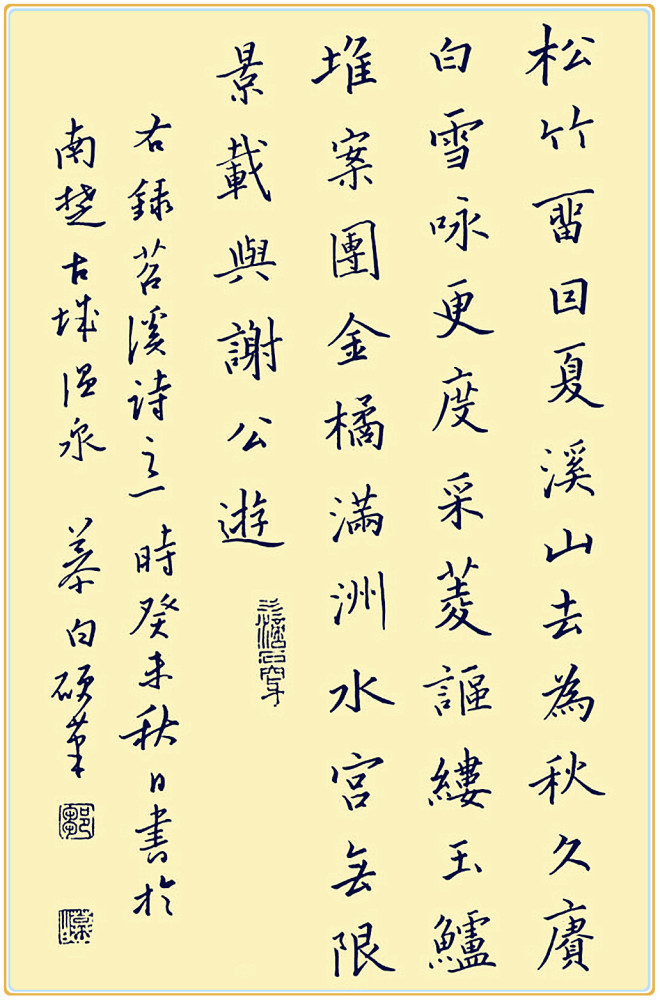 松竹畱囙夏溪山去為秋久賡
白雪咏更度采菱謳縷玉鱸
堆案團金橘滿洲水宮無限
景載與謝公遊
右録苕溪詩之一時癸未秋日書於
南楚古城温泉 慕白硬筆